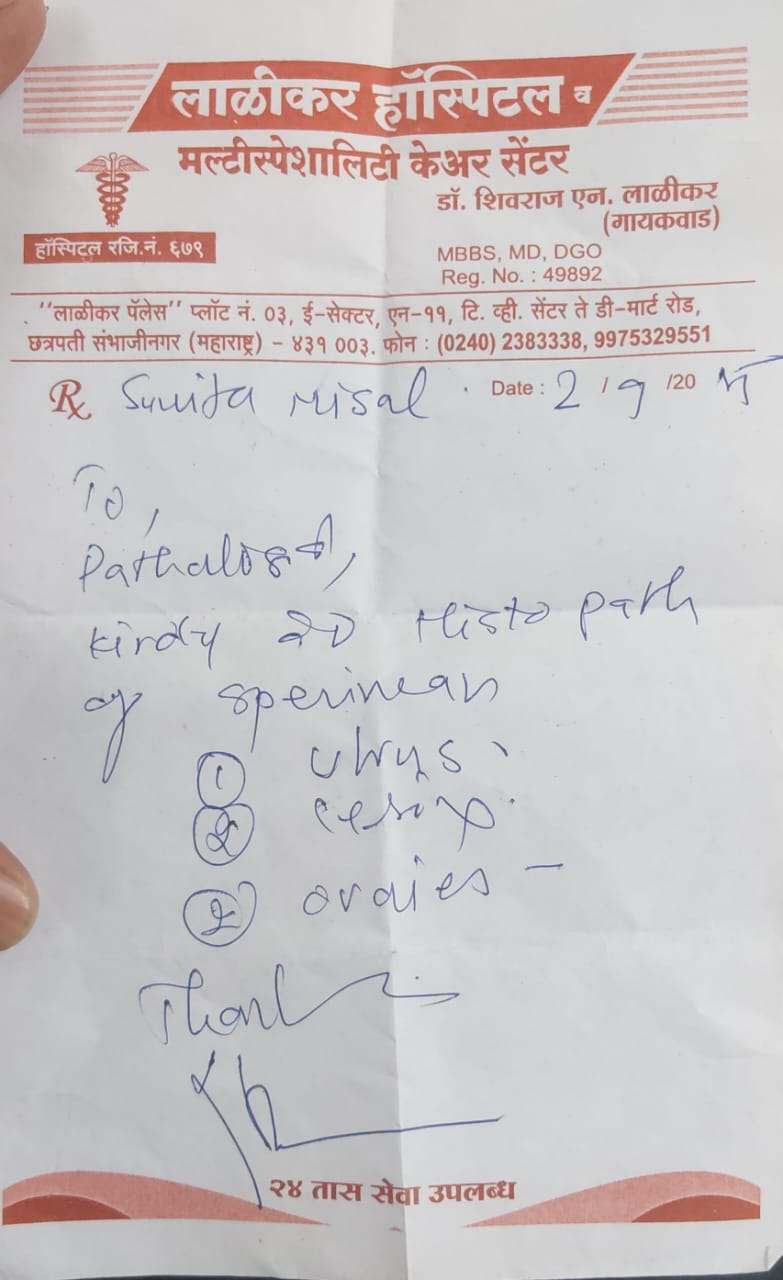 लाळीकर हॉस्पिटल व
मल्टीस्पेशालिटी केअर सेंटर
डॉ. शिवराज एन. लाळीकर
(गायकवाड)
हॉस्पिटल रजि.नं. ६७९
MBBS, MD, DGO
Reg. No. : 49892
"लाळीकर पॅलेस" प्लॉट नं. ०३, ई-सेक्टर, एन-११, टि. व्ही. सेंटर ते डी-मार्ट रोड,
छत्रपती संभाजीनगर (महाराष्ट्र) - ४३१ ००३. फोन : (0240) 2383338, 9975329551
Rx Sunita Misal . Date : 2 / 9 /20
To,
Kindly do Histo path
of
① 
② cervix
② ovaies -
२४ तास सेवा उपलब्ध